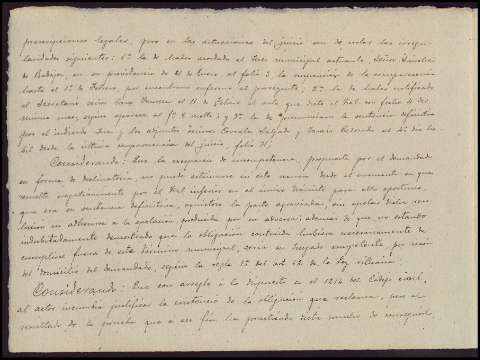 prescripciones legales, pero en las actuaciones del juicio son de notar las irregu-
laridades siguientes: 1ª la de haber acordado el Juez municipal actuante, Señor
de Badajoz, en su providencia de 21 de Enero, al folio 3, la suspensión de la comparecencia
hasta el 1º de Febrero, por encontrarse enfermo el ; 2ª la de haber notificado
el Secretario señor el 11 de Febrero el auto que dictó el Tral con fecha 4 del
mismo mes, según aparece al fº 8 vuelto; y 3ª la de pronunciarse la sentencia definitiva
por el indicado Juez y los adjuntos señores Salgado y Redondo al 4º día há-
bil desde la última comparecencia del juicio, folio 31;
Considerando: Que la excepción de incompetencia, propuesta por el demandado
en forma de declinatoria, no puede estimarse en esta segunda desde el momento en que
resuelta negativamente por el Tral inferior en el único trámite para ello oportuno,
que era en sentencia definitiva, consintió la parte agraviada, sin apelar dicha reso-
lución ni adherirse a la apelación producida por su adverso; además de que no estando
indubitadamente demostrado que la obligación contraída hubiera necesariamente de
cumplirse fuera de este término municipal, sería su Juzgado competente por razón
del domicilio del demandado, según la regla 1ª del art. 62 de la Ley rituaria.
Considerando: Que con arreglo a lo dispuesto en el 1214 del Código civil,
al actor incumbía justificar la existencia de la obligación que reclama, pero el
resultado de la prueba que a ese fin ha practicado dista mucho de conseguirlo,